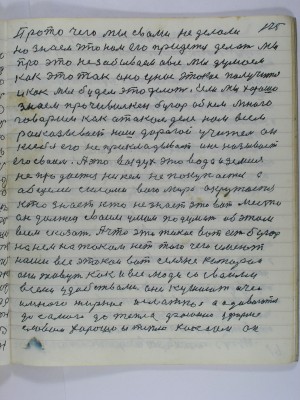 125
Про то чего мы с вами не делали
но знаем это нам его придется делать мы
про это не забываем а все мы думаем
как это так оно у нас это все получится
и как мы будем это делать. Если мы хорошо
знаем про человека бугор об нем много
говорим как о таком деле нам всем
рассказывает наш дорогой учитель он
на себя его не прикладывает а не называет
его своим. А это воздух это вода и земля
не продается никем не покупается с
общими силами вам мире окружается
кто знает кто не знает это вот место
он должен своим умом подумать об этом
всем сказать. А что это такое вот есть бугор
на нем на таком нет того чего имеют
наши все это как вот селяне которые
они живут как и все люди со своими
всеми удобствами они кушают и чем
много жирное и сладкое а одеваются
до самого до тепла домашне у форме
словом хорошо и тепло киселем он